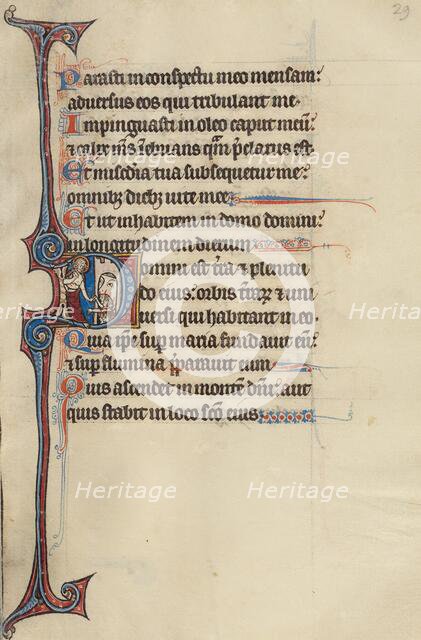 29
Parasti in conspectu meo mensam:
adversus eos qui tribulant me.
Impinguasti in oleo caput meū:
⁊ calix mīs īebrians qm̄ pclarus est.
Et mīsc̄dia tua subsequetur me:
omnibȝ diebȝ uite mee.
Et ut inhabitem in domo domini:
in longitudinem dierum.
Domini est tr̄a ⁊ plenitu
do eius: orbis trāꝝ ⁊ uni
uersi qui habitant in eo.
Quia ip̄e sup maria fundauit eū:
⁊ sup flumina p̄parauit eum.
Quis ascendet in montē dn̄i: aut
quis stabit in loco sc̄o eius.
Heritage
Heritage
Heritage
Heritage
Heritage
Heritage
Heritage